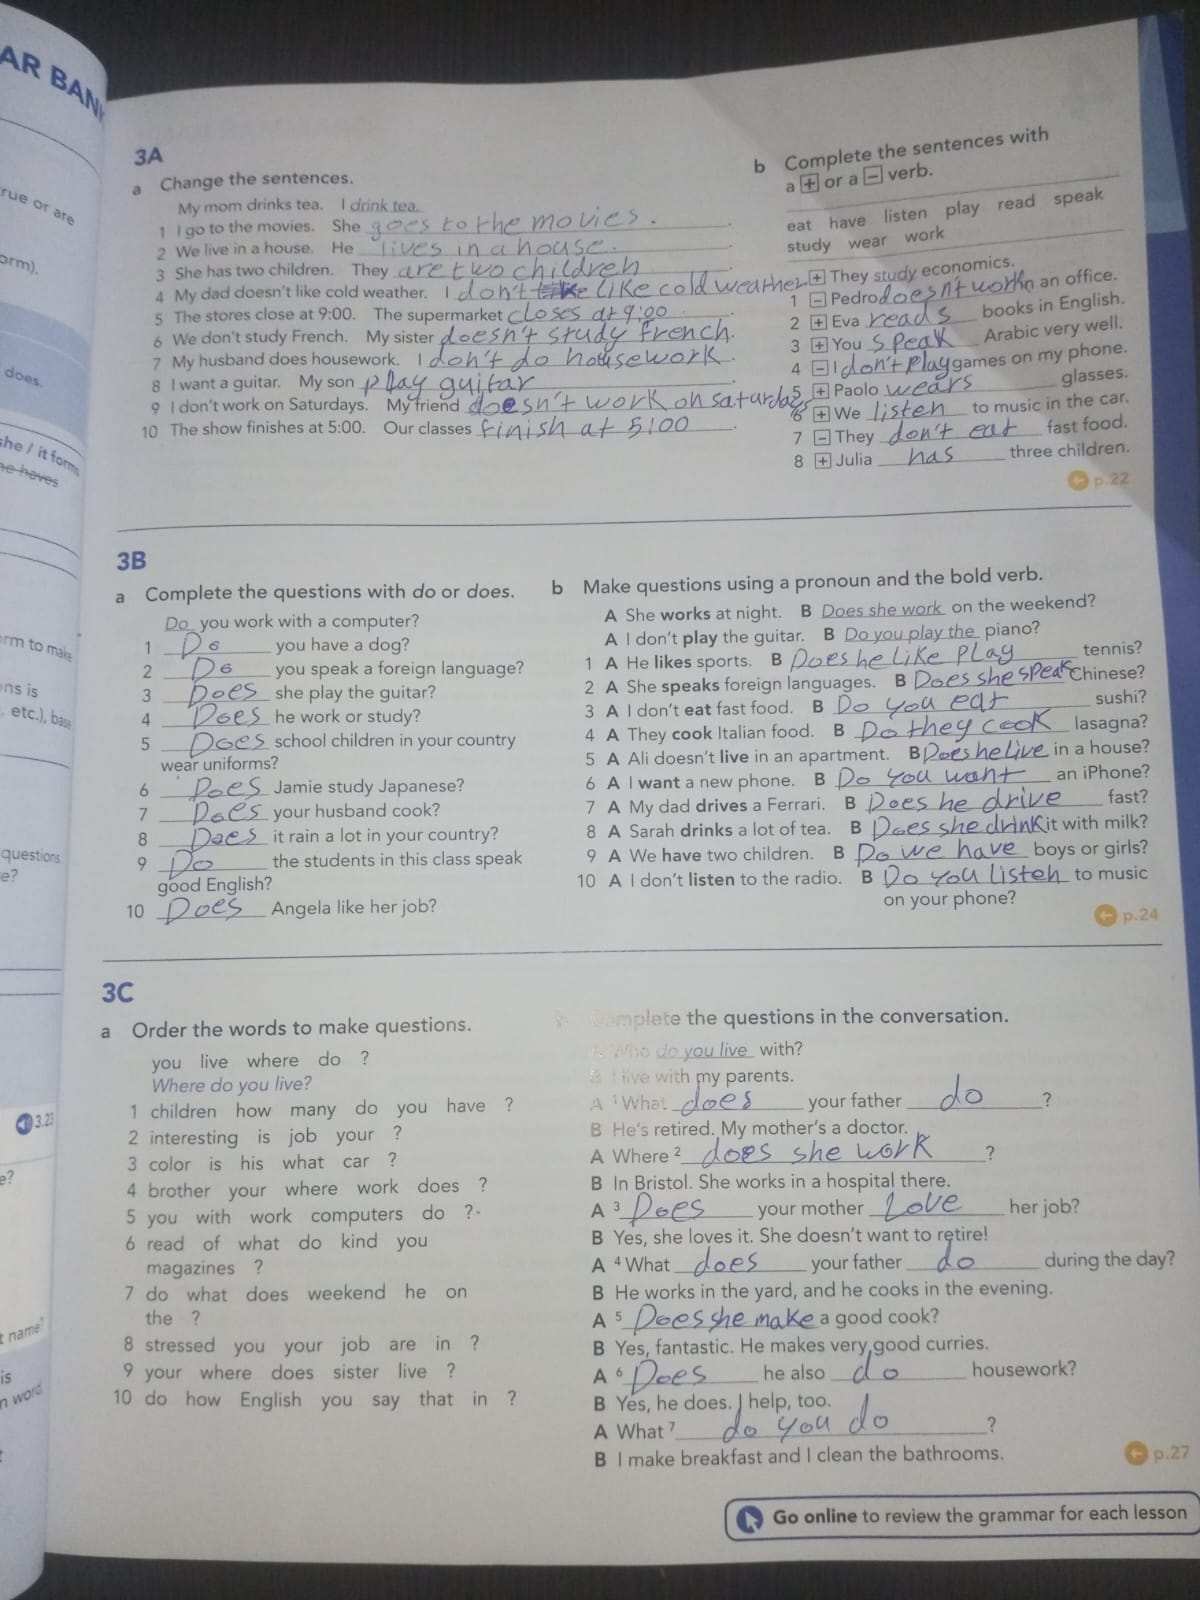 AR BANK
rue or are
orm).
does.
she / it forms
he haves
orm to make
ns is
, etc.), base
questions
e?
3.23
e?
t name?
is
n word
3A
a Change the sentences.
My mom drinks tea. I drink tea.
1 I go to the movies. She goes to the movies.
2 We live in a house. He lives in a house.
3 She has two children. They are two children
4 My dad doesn't like cold weather. I don't like cold weather
5 The stores close at 9:00. The supermarket closes at 9:00
6 We don't study French. My sister doesn't study French.
7 My husband does housework. I don't do housework.
8 I want a guitar. My son play guitar
9 I don't work on Saturdays. My friend doesn't work on saturdays
10 The show finishes at 5:00. Our classes finish at 5:00
b Complete the sentences with
a + or a – verb.
eat have listen play read speak
study wear work
+ They study economics.
1 – Pedro doesn't work in an office.
2 + Eva reads books in English.
3 + You speak Arabic very well.
4 – I don't play games on my phone.
5 + Paolo wears glasses.
6 + We listen to music in the car.
7 – They don't eat fast food.
8 + Julia has three children.
p.22
3B
a Complete the questions with do or does.
Do you work with a computer?
1 Do you have a dog?
2 Do you speak a foreign language?
3 Does she play the guitar?
4 Does he work or study?
5 Does school children in your country
wear uniforms?
6 Does Jamie study Japanese?
7 Does your husband cook?
8 Does it rain a lot in your country?
9 Do the students in this class speak
good English?
10 Does Angela like her job?
b Make questions using a pronoun and the bold verb.
A She works at night. B Does she work on the weekend?
A I don't play the guitar. B Do you play the piano?
1 A He likes sports. B Does he like play tennis?
2 A She speaks foreign languages. B Does she speak Chinese?
3 A I don't eat fast food. B Do you eat sushi?
4 A They cook Italian food. B Do they cook lasagna?
5 A Ali doesn't live in an apartment. B Does he live in a house?
6 A I want a new phone. B Do you want an iPhone?
7 A My dad drives a Ferrari. B Does he drive fast?
8 A Sarah drinks a lot of tea. B Does she drink it with milk?
9 A We have two children. B Do we have boys or girls?
10 A I don't listen to the radio. B Do you listen to music
on your phone?
p.24
3C
a Order the words to make questions.
you live where do ?
Where do you live?
1 children how many do you have ?
2 interesting is job your ?
3 color is his what car ?
4 brother your where work does ?
5 you with work computers do ?
6 read of what do kind you
magazines ?
7 do what does weekend he on
the ?
8 stressed you your job are in ?
9 your where does sister live ?
10 do how English you say that in ?
b Complete the questions in the conversation.
A Who do you live with?
B I live with my parents.
A 1 What does your father do ?
B He's retired. My mother's a doctor.
A Where 2 does she work ?
B In Bristol. She works in a hospital there.
A 3 Does your mother Love her job?
B Yes, she loves it. She doesn't want to retire!
A 4 What does your father do during the day?
B He works in the yard, and he cooks in the evening.
A 5 Does she make a good cook?
B Yes, fantastic. He makes very good curries.
A 6 Does he also do housework?
B Yes, he does. I help, too.
A What 7 do you do ?
B I make breakfast and I clean the bathrooms.
p.27
Go online to review the grammar for each lesson